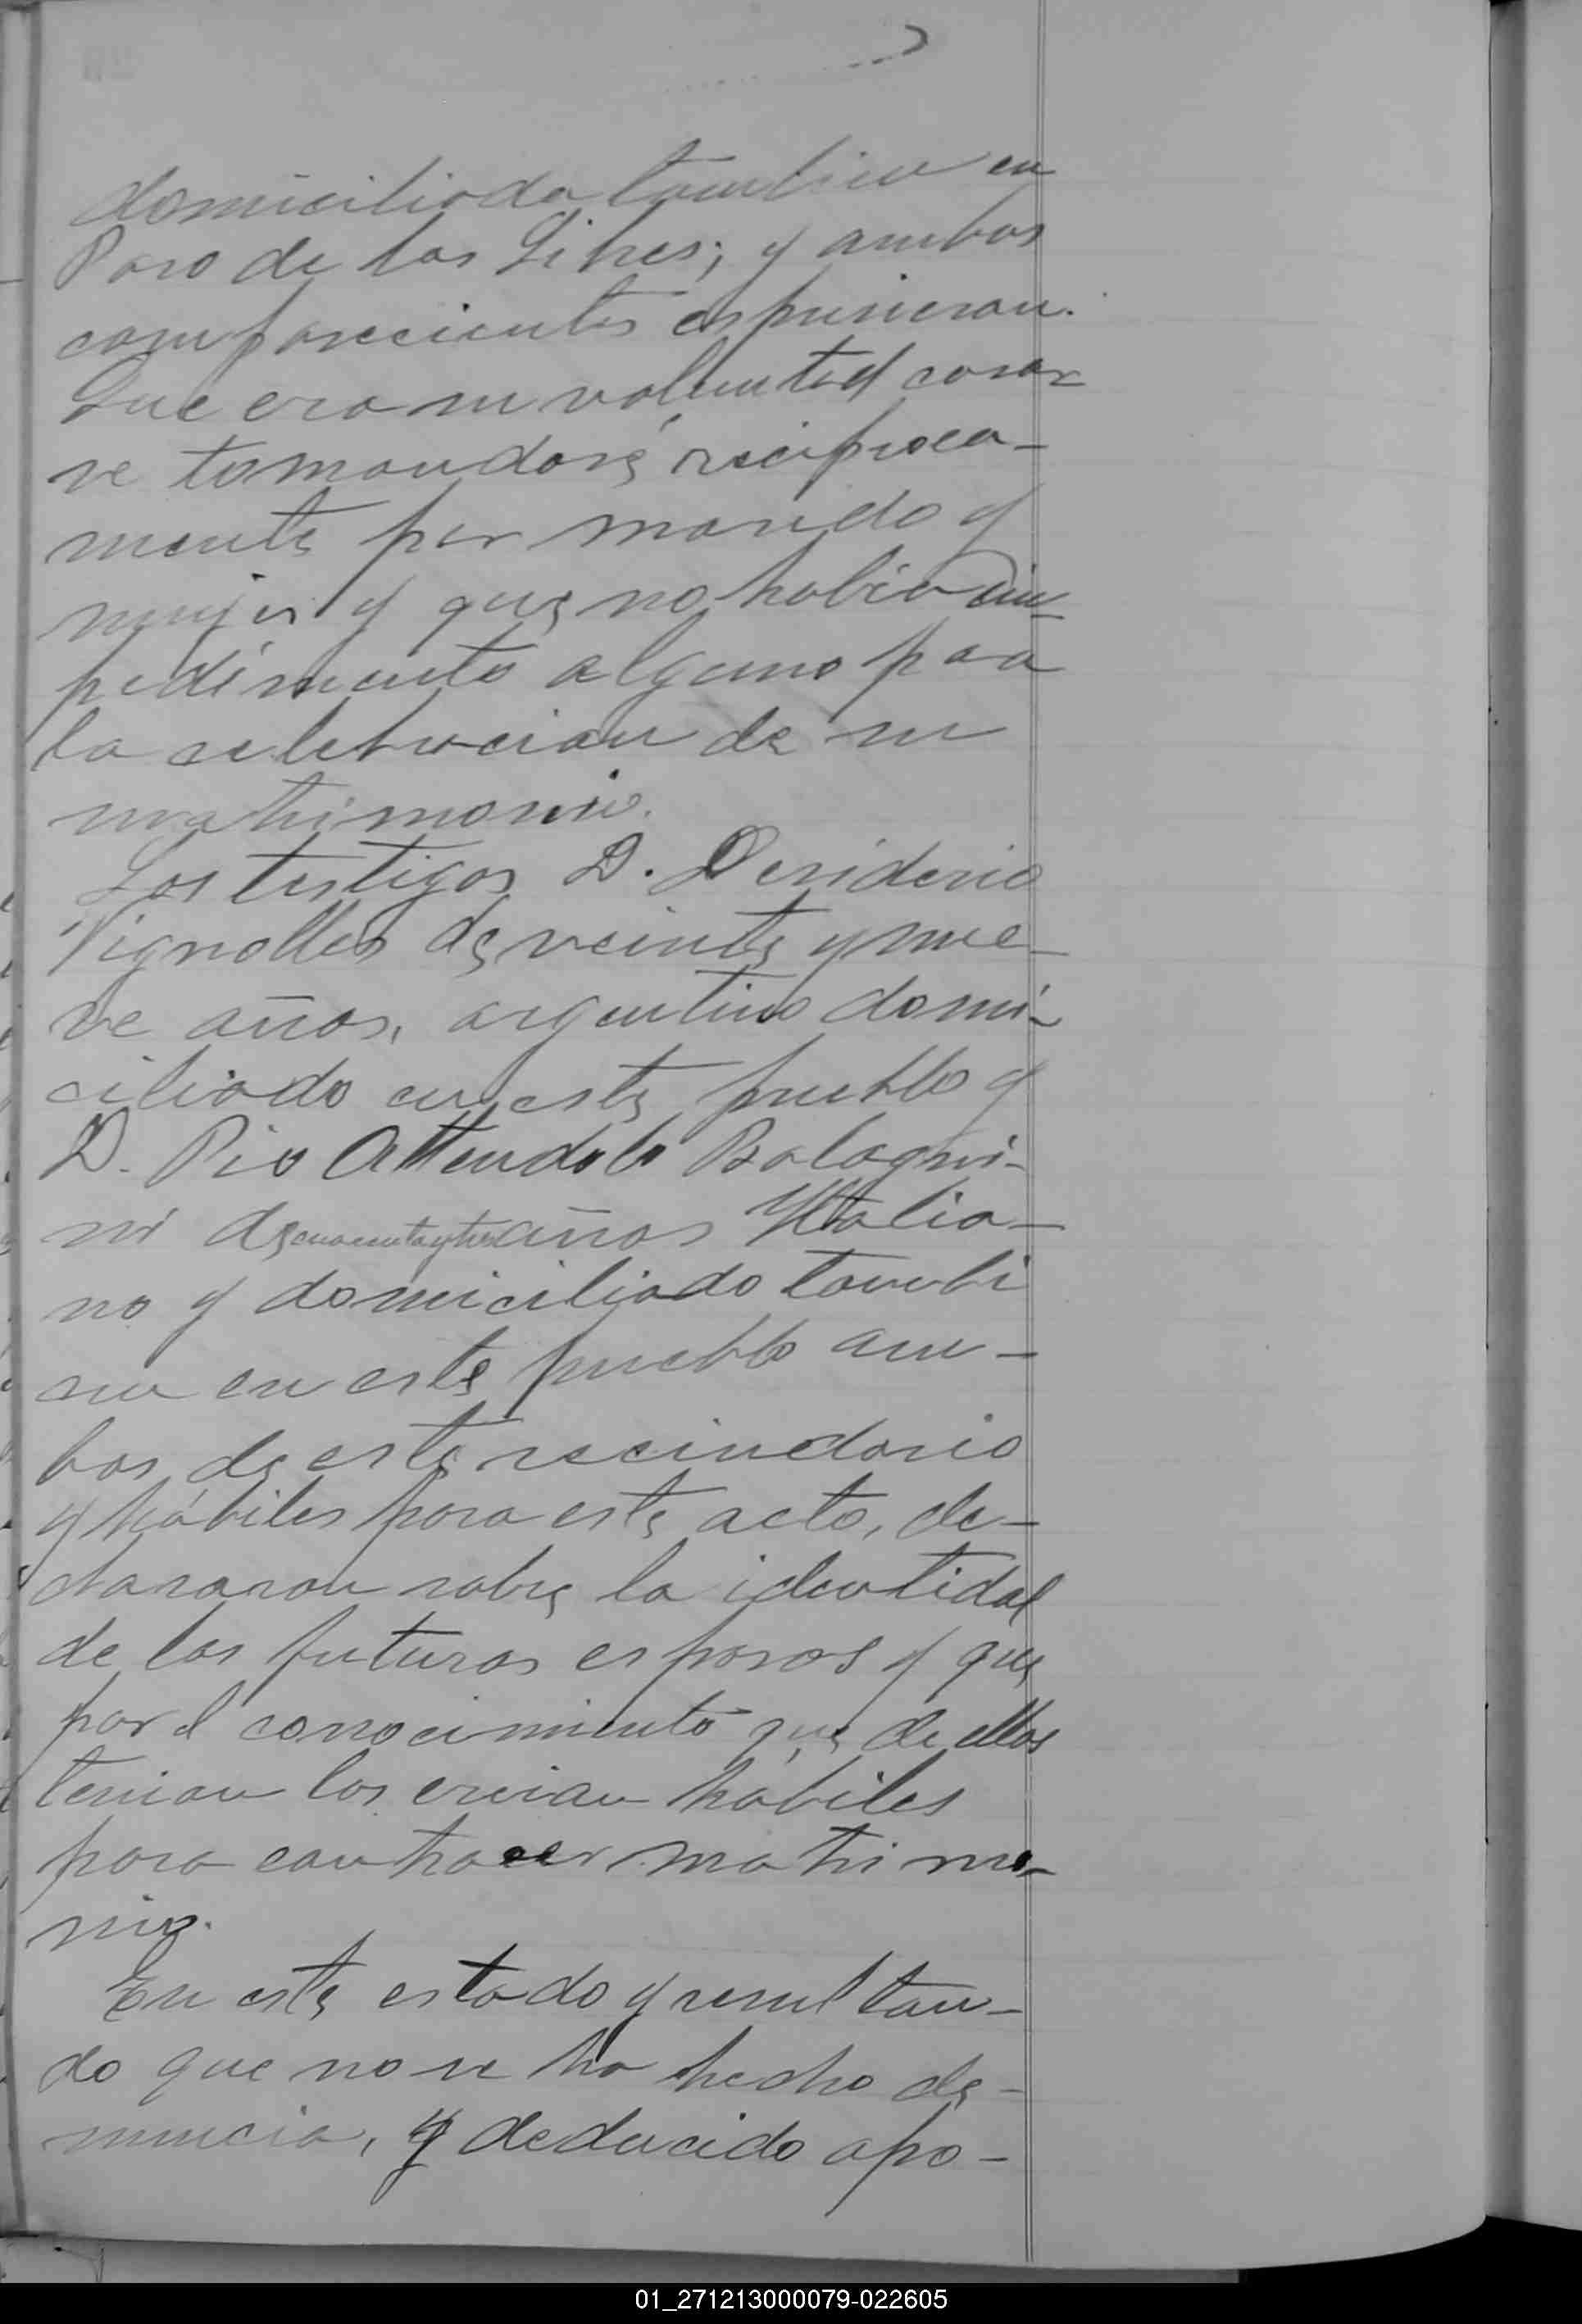 domiciliada tambien en
Paso de los Libres; y ambos
comparecientes espusieron.
Que era su voluntad casar
se tomandose reciproca-
mente por marido y
mujer y que no habia im-
pedimento alguno para
la celebracion de su
matrimonio.
Los testigos D. Desiderio
Vignolles de veinte y nue-
ve años, argentino domi-
ciliado en este pueblo y
D. Pio Attendolo Bologni-
ni de cuarenta y tres años Ytalia-
no y domiciliado tambi
en en este pueblo am-
bos de este vecindario
y hábiles para este acto, de-
clararon sobre la identidad
de los futuros esposos y que
por el conocimiento que de ellos
tenian los creian hábiles
para contraer matrimo-
nio.
En este estado y resultan-
do que no se ha hecho de-
nuncia, y deducido opo-
01_271213000079-022605